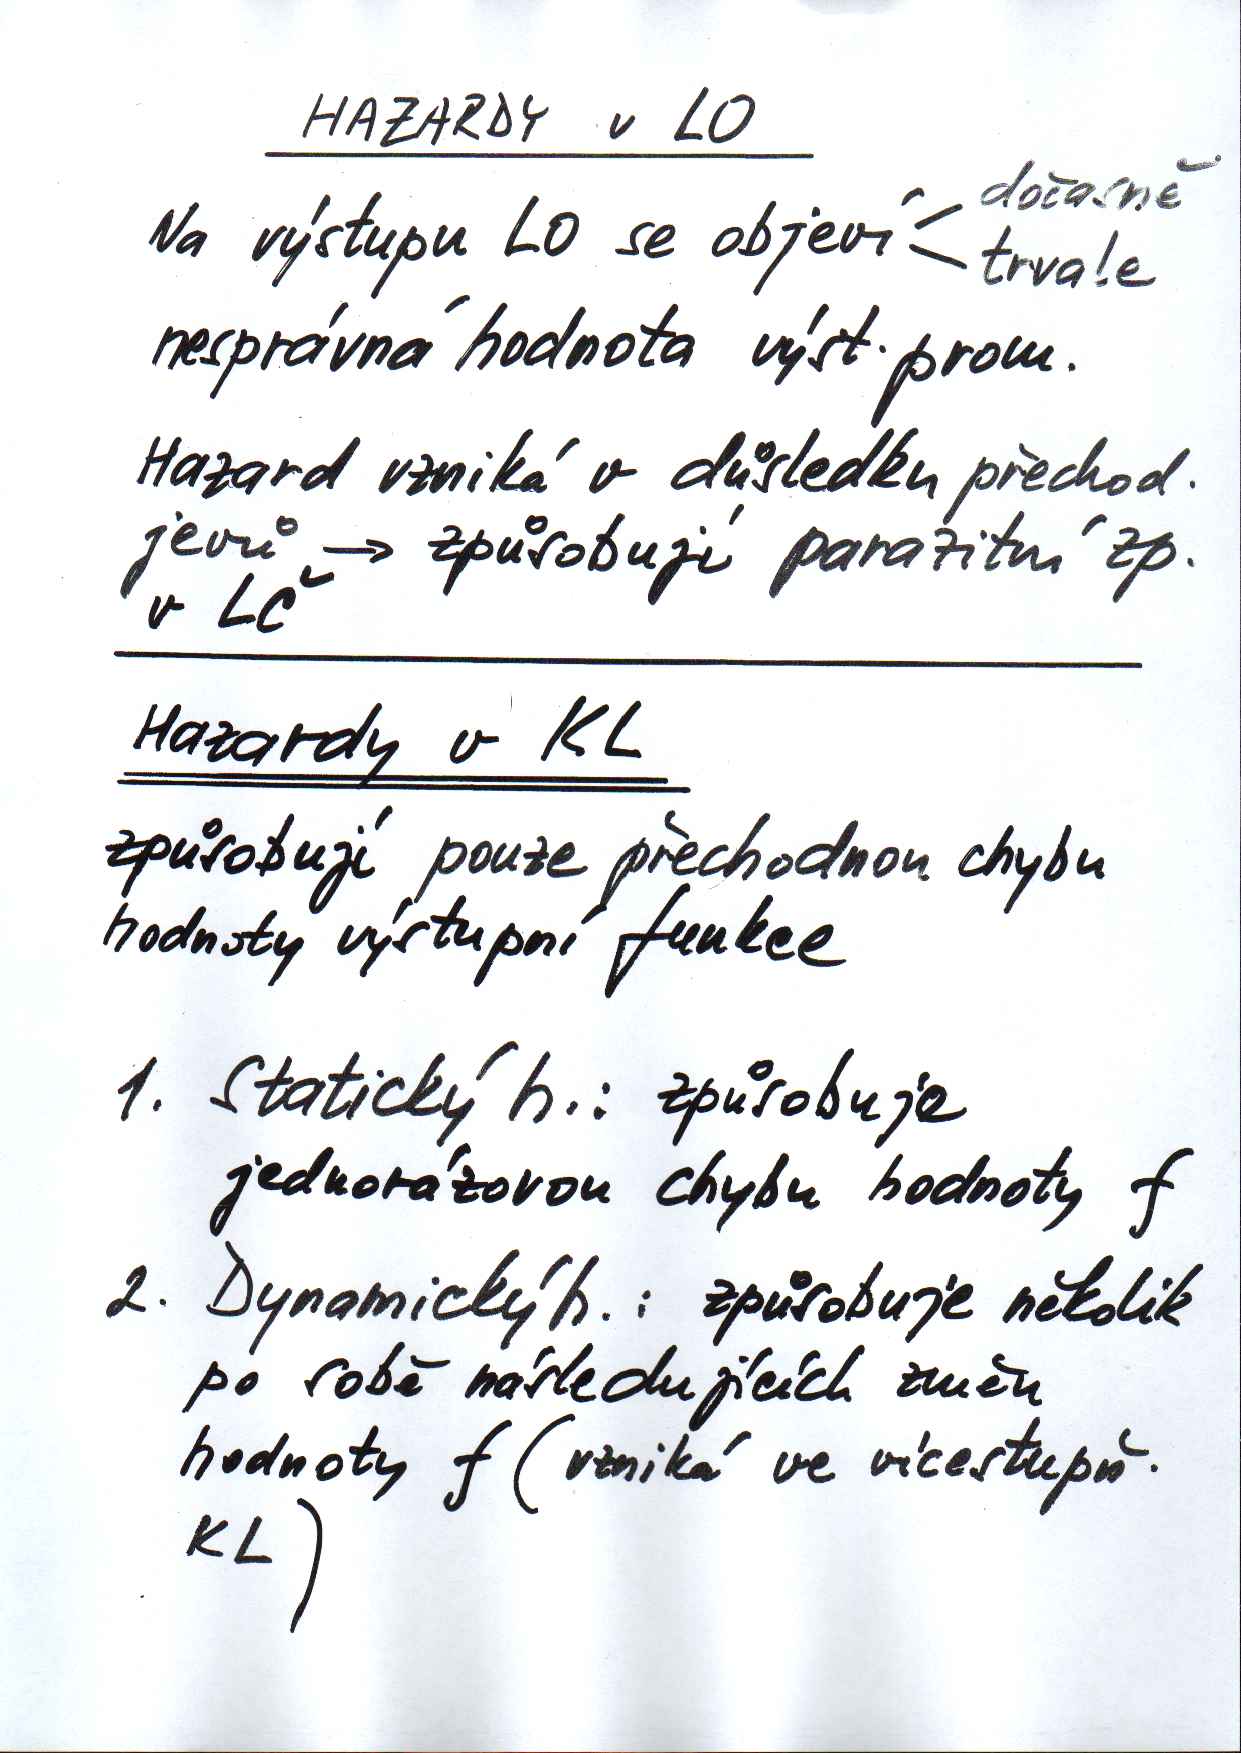 HAZARDY v LO
Na výstupu LO se objeví < dočasně
trvale
nesprávná hodnota výst. prom.
Hazard vzniká v důsledku přechod.
jevů → způsobují parazitní zp.
v LČ
Hazardy v KL
způsobují pouze přechodnou chybu
hodnoty výstupní funkce
1. Statický h.: způsobuje
jednorázovou chybu hodnoty f
2. Dynamický h.: způsobuje několik
po sobě následujících změn
hodnoty f (vzniká ve vícestupň.
KL)